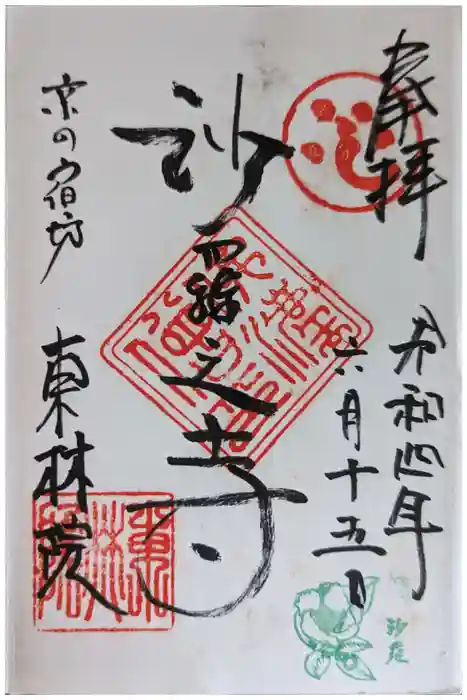 奉拝
令和四年
六月十五日
沙羅之寺
京の宿坊
東林院
東林院
沙羅